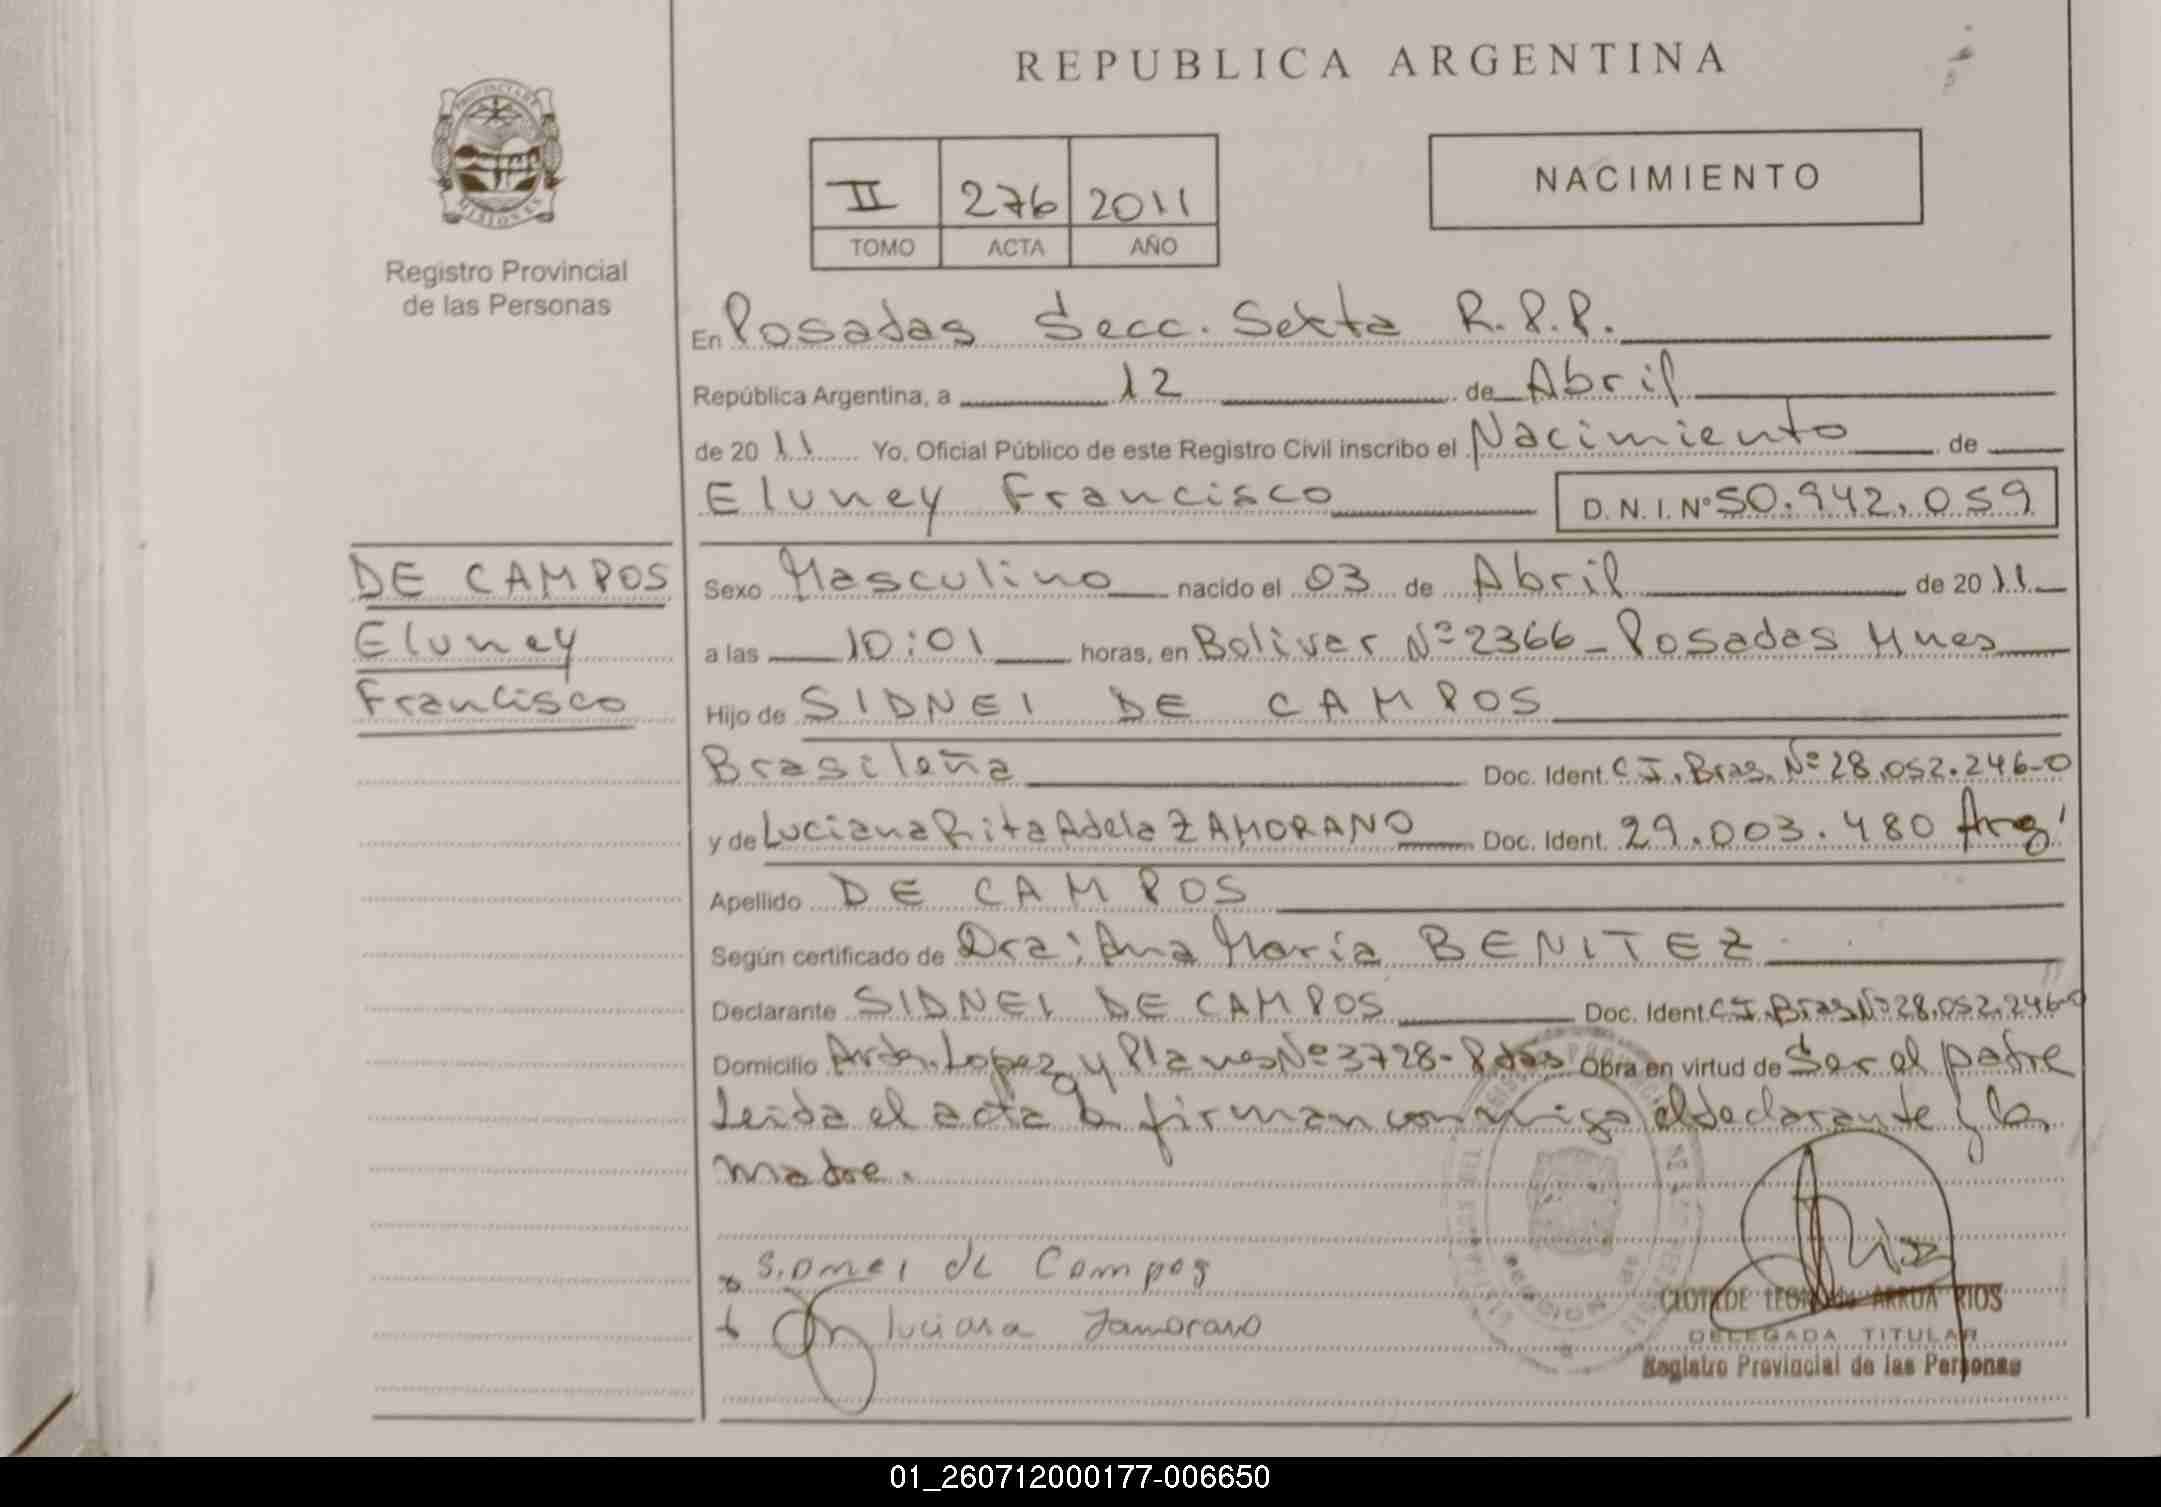 REPUBLICA ARGENTINA
PROVINCIA DE
MISIONES
Registro Provincial
de las Personas
II 276 2011
TOMO ACTA AÑO
NACIMIENTO
En Posadas Secc. Sexta R.P.P.
República Argentina, a 12 de Abril
de 2011 Yo, Oficial Público de este Registro Civil inscribo el Nacimiento de
Eluney Francisco D.N.I. Nº 50.942.059
DE CAMPOS
Eluney
Francisco
Sexo Masculino nacido el 03 de Abril de 2011
a las 10:01 horas, en Bolivar Nº 2366 - Posadas Mnes
Hijo de SIDNEI DE CAMPOS
Brasileña Doc. Ident. C.I. Bras. Nº 28.052.246-0
y de Luciana Rita Adela ZAMORANO Doc. Ident. 29.003.480 Arg.
Apellido DE CAMPOS
Según certificado de Dra: Ana María BENITEZ
Declarante SIDNEI DE CAMPOS Doc. Ident. C.I. Bras Nº 28.052.246-0
Domicilio Lopez y Planes Nº 3728 - Pdas Obra en virtud de Ser el padre
Leida el acta la firman conmigo el declarante y la
madre.
Sidnei de Campos
Luciana Zamorano
ARRUA RIOS
DELEGADA TITULAR
Registro Provincial de las Personas
01_260712000177-006650